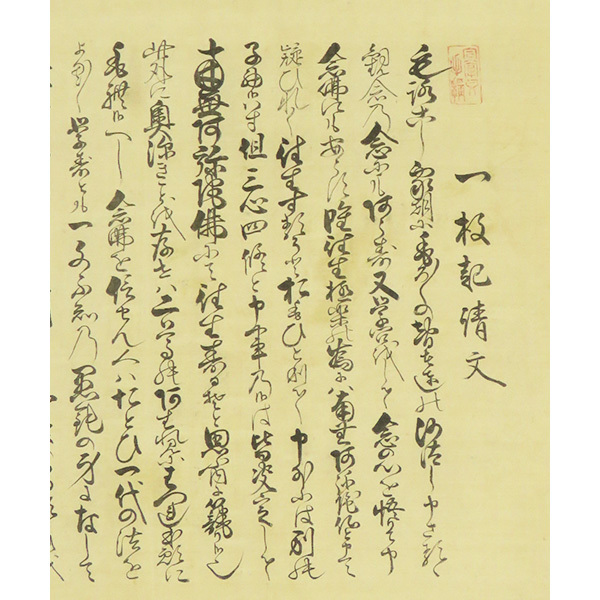 一枚起請文
もろこし我朝にもろ〱の智者達の沙汰し申さるゝ
観念乃念にも阿らす又学問をして念の心を悟りて申
念佛にもあらす唯往生極楽の為にハ南無阿弥陀佛と申て
疑ひなく往生するそと思ひとりて申外には別の
子細候はす但三心四修と申事乃候は皆決定して
南無阿弥陀佛にて往生するそと思内に籠り候也
此外に奥深きことを存せハ二尊の阿はれみにはつれ本願に
もれ候へし念佛を信せん人ハたとひ一代の法を
よく〱学すとも一文不知乃愚鈍の身になして